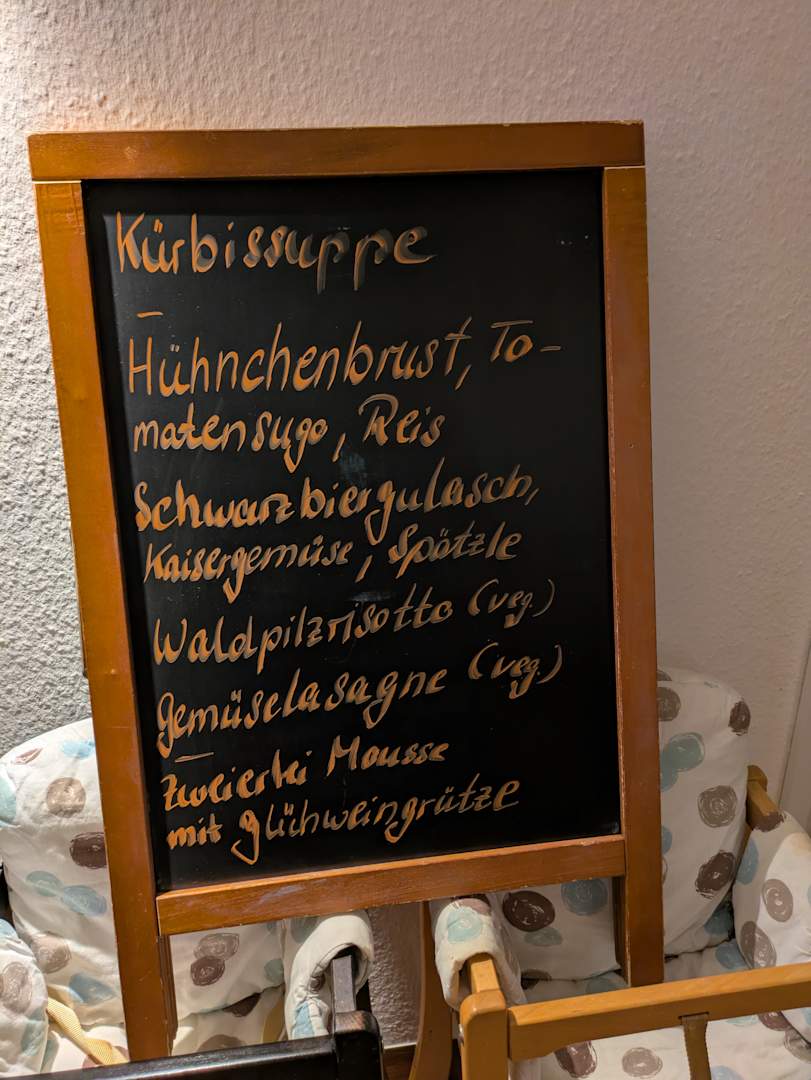 Kürbissuppe
–
Hühnchenbrust, To-
matensugo, Reis
Schwarzbiergulasch,
Kaisergemüse, Spätzle
Waldpilzrisotto (veg.)
Gemüselasagne (veg.)
–
Zweierlei Mousse
mit Glühweingrütze